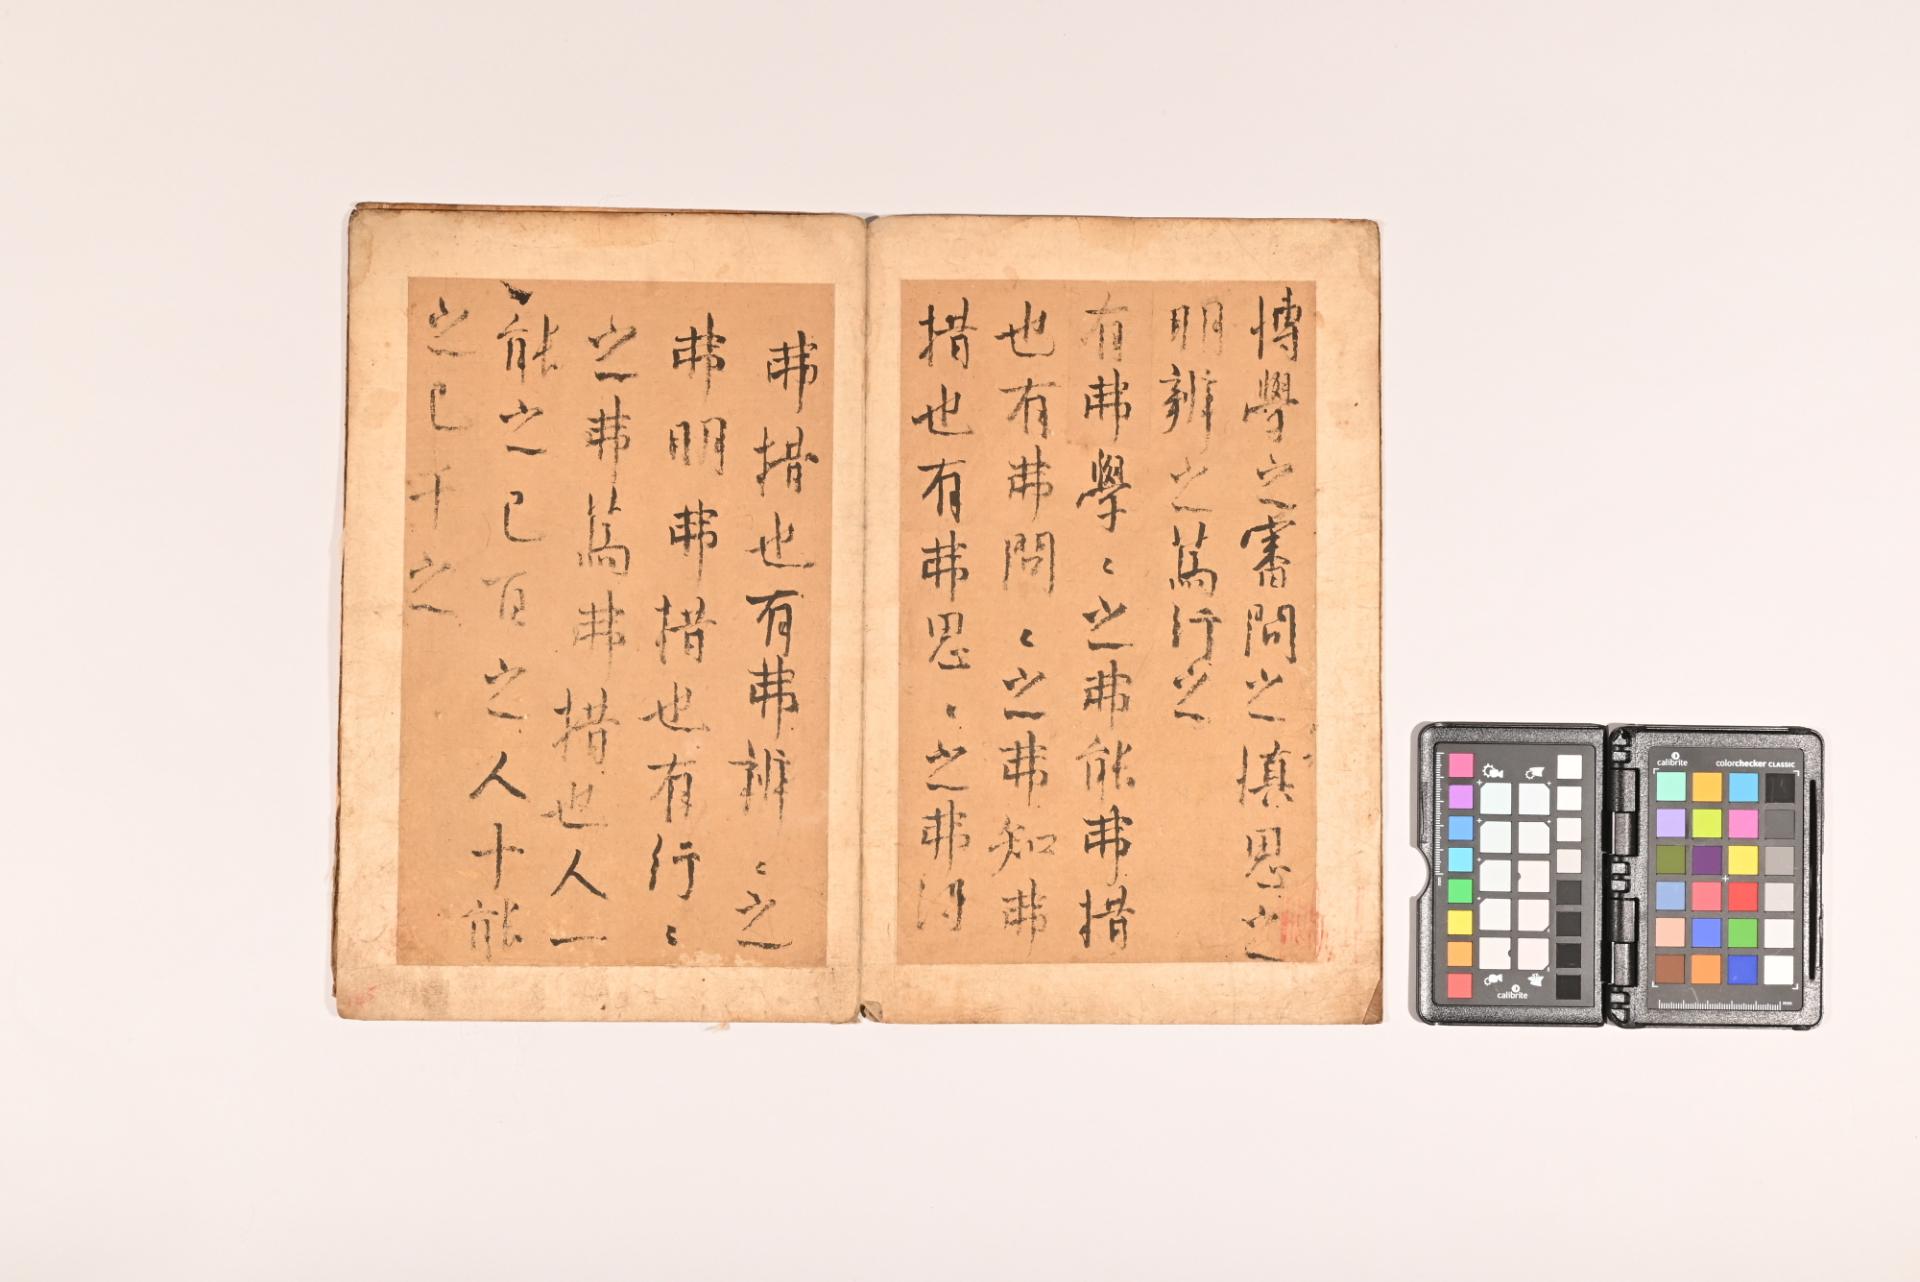 博學之審問之慎思之
明辨之篤行之
有弗學〻之弗能弗措
也有弗問〻之弗知弗
措也有弗思〻之弗得
弗措也有弗辨〻之
弗明弗措也有行〻
之弗篤弗措也人一
能之己百之人十能
之己千之
calibrite
calibrite
colorchecker CLASSIC